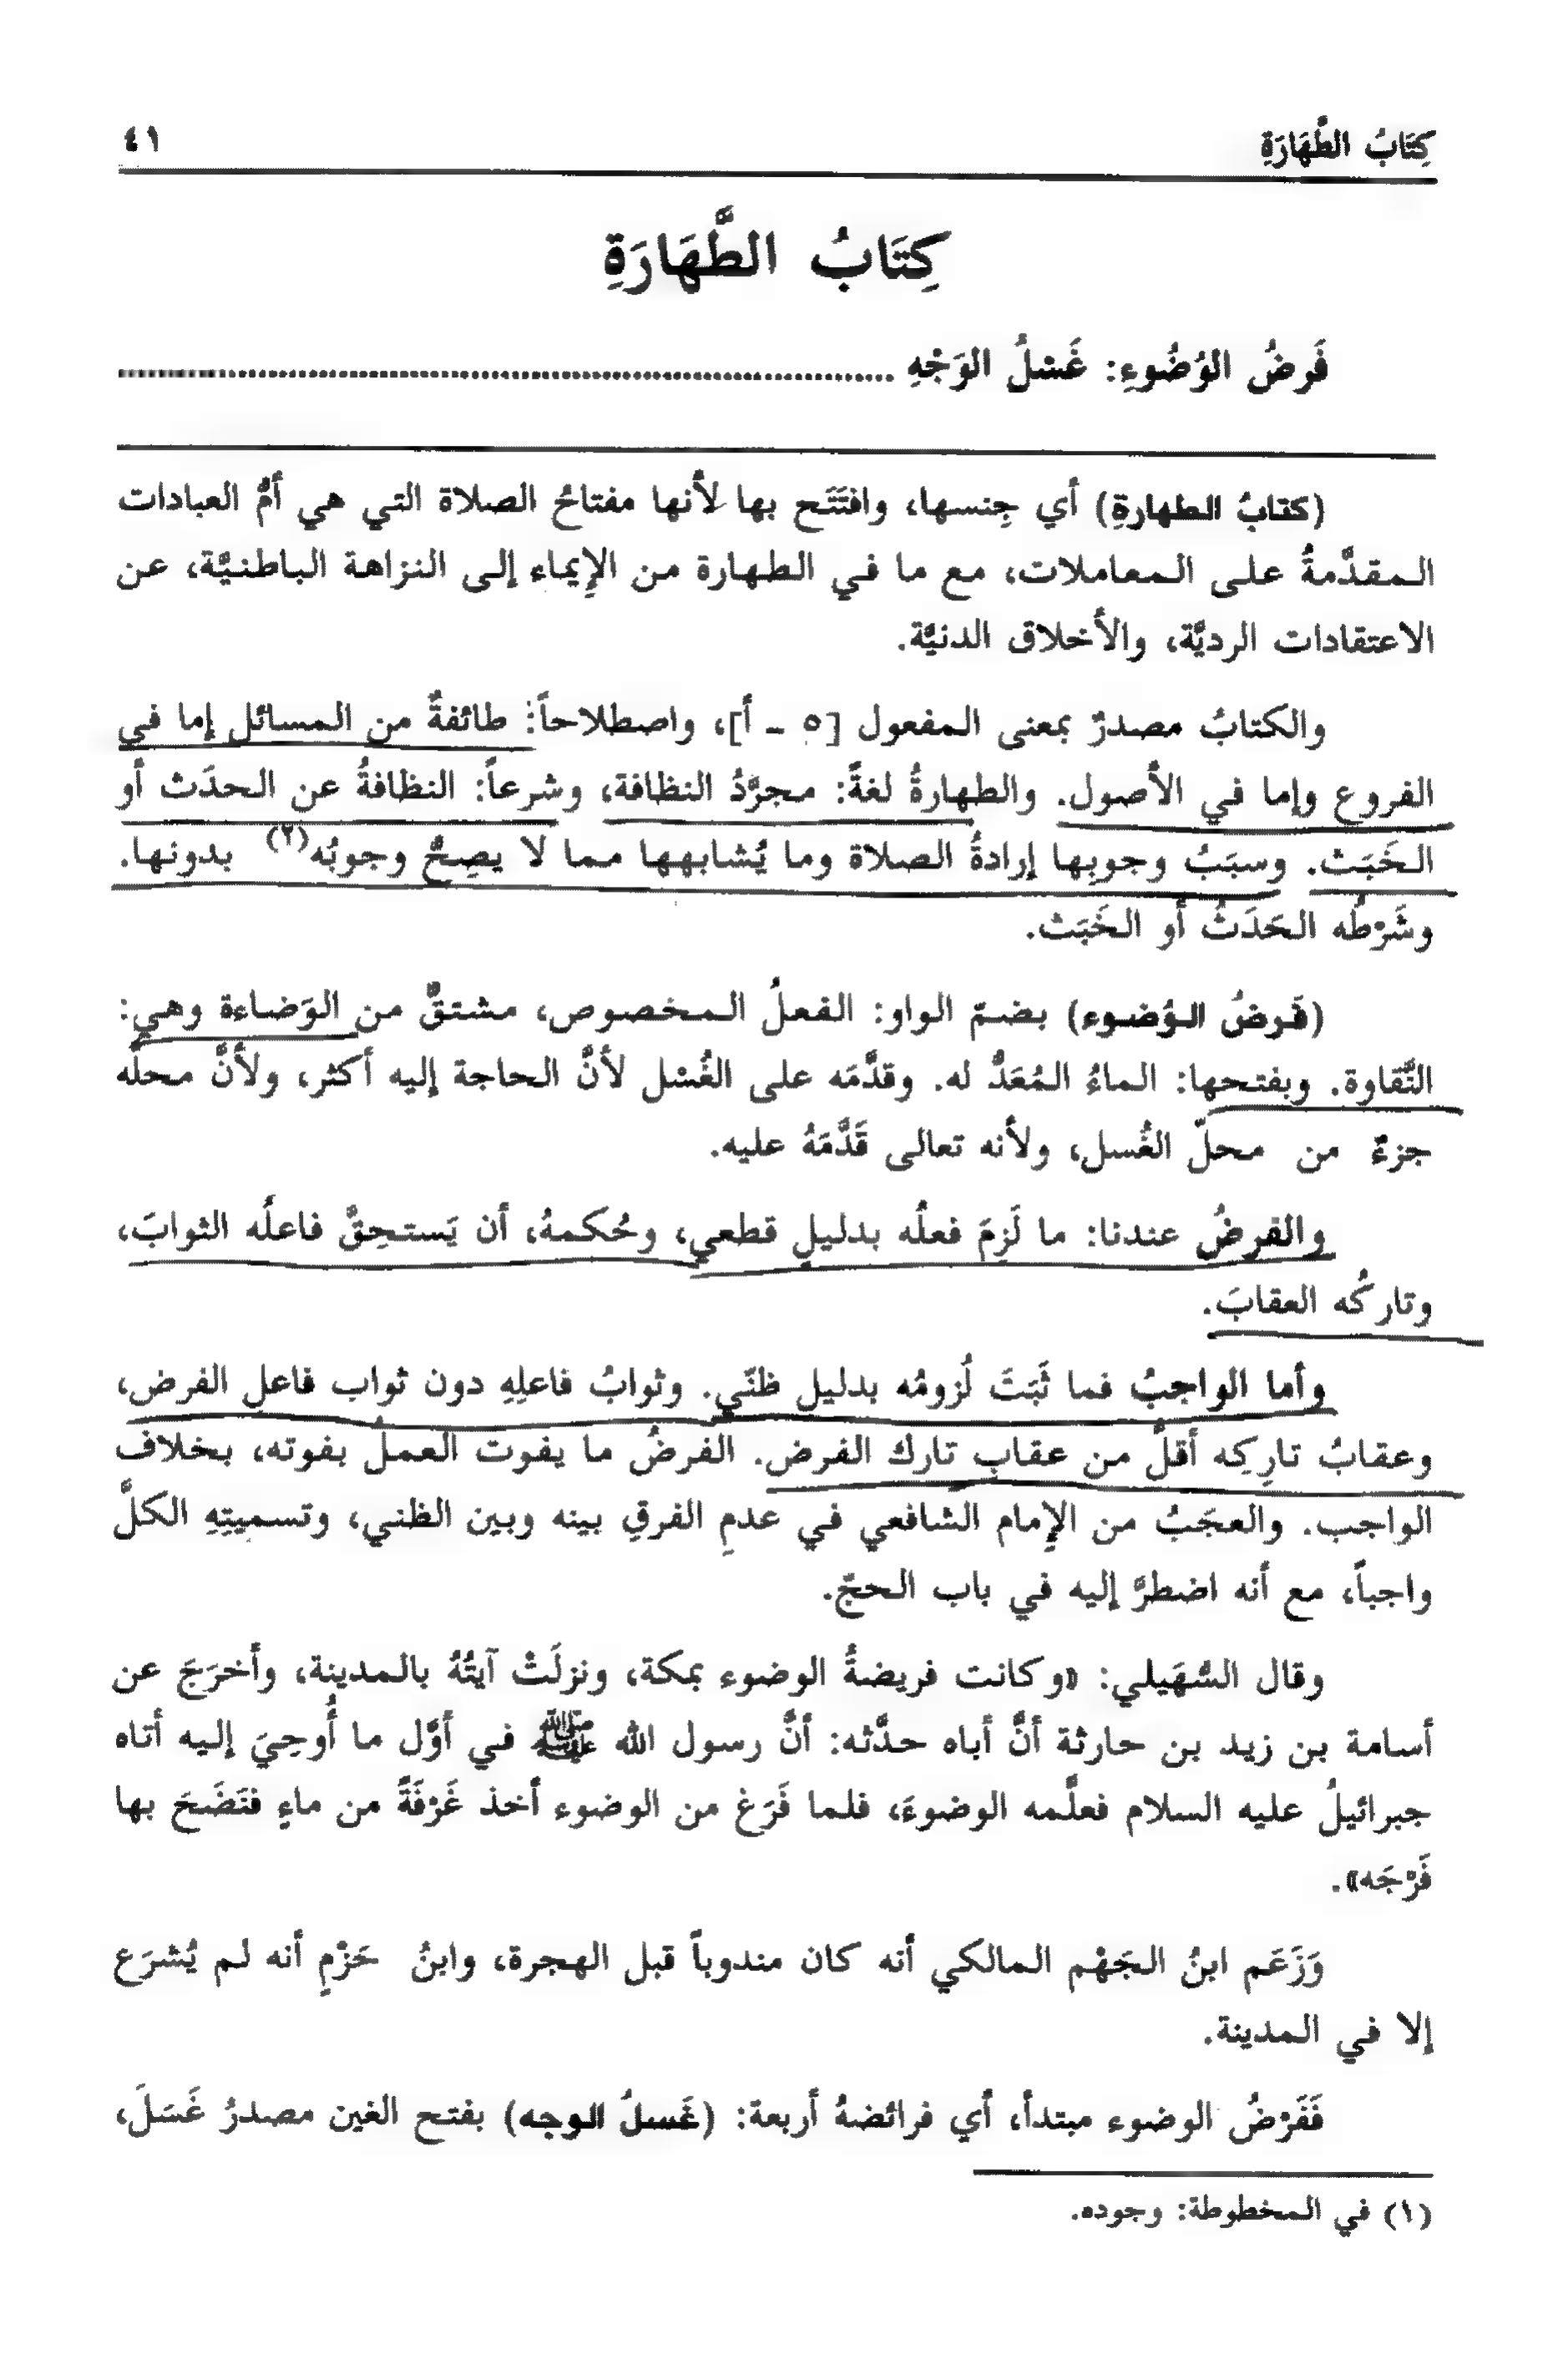 كِتَابُ الطَّهَارَةِ ٤١
كِتَابُ الطَّهَارَةِ
فَرضُ الوُضُوءِ: غَسْلُ الوَجْهِ ..........................................................................
(كتابُ الطهارةِ) أي جِنسها، وافتَتَح بها لأنها مفتاحُ الصلاة التي هي أمُّ العبادات
المقدَّمةُ على المعاملات، مع ما في الطهارة من الإيماء إلى النزاهة الباطنيَّة، عن
الاعتقادات الرديَّة، والأخلاق الدنيَّة.
والكتابُ مصدرٌ بمعنى المفعول [٥ - أ]، واصطلاحاً: طائفةٌ من المسائل إما في
الفروع وإما في الأصول. والطهارةُ لغةً: مجرَّدُ النظافة، وشرعاً: النظافةُ عن الحدَث أو
الخَبَث. وسبَبُ وجوبِها إرادةُ الصلاة وما يُشابهها مما لا يصِحُّ وجوبُه(٢) بدونها.
وشَرْطُه الحَدَثُ أو الخَبَث.
(فَرضُ الوُضوء) بضمّ الواو: الفعلُ المخصوص، مشتقٌّ من الوَضاءة وهي:
النَّقاوة. وبفتحها: الماءُ المُعَدُّ له. وقدَّمَه على الغُسْل لأنَّ الحاجة إليه أكثر، ولأنَّ محلَّه
جزءٌ من محلّ الغُسل، ولأنه تعالى قَدَّمَهُ عليه.
والفرضُ عندنا: ما لَزِمَ فعلُه بدليلٍ قطعي، وحُكمهُ، أن يَستحِقَّ فاعلُه الثوابَ،
وتاركُه العقابَ.
وأما الواجبُ فما ثَبَتَ لُزومُه بدليل ظنّي. وثوابُ فاعلِهِ دون ثواب فاعلِ الفرض،
وعقابُ تارِكِه أقلُّ من عقابِ تارك الفرض. الفرضُ ما يفوت العملُ بفوته، بخلاف
الواجب. والعجَبُ من الإمام الشافعي في عدمِ الفرقِ بينه وبين الظني، وتسميتِهِ الكلَّ
واجباً، مع أنه اضطرَّ إليه في باب الحجّ.
وقال السُّهَيلي: «وكانت فريضةُ الوضوء بمكة، ونزلَتْ آيتُهُ بالمدينة، وأخرَجَ عن
أسامة بن زيد بن حارثة أنَّ أباه حدَّثه: أنَّ رسول الله ﷺ في أوَّل ما أُوحِيَ إليه أتاه
جبرائيلُ عليه السلام فعلَّمه الوضوءَ، فلما فَرَغ من الوضوء أخذ غَرْفَةً من ماءٍ فنَضَحَ بها
فَرْجَه».
وَزَعَم ابنُ الجَهْم المالكي أنه كان مندوباً قبل الهجرة، وابنُ حَزْمٍ أنه لم يُشرَع
إلا في المدينة.
فَفَرْضُ الوضوء مبتدأ، أي فرائضهُ أربعة: (غَسلُ الوجه) بفتح الغين مصدرُ غَسَلَ،
(١) في المخطوطة: وجوده.